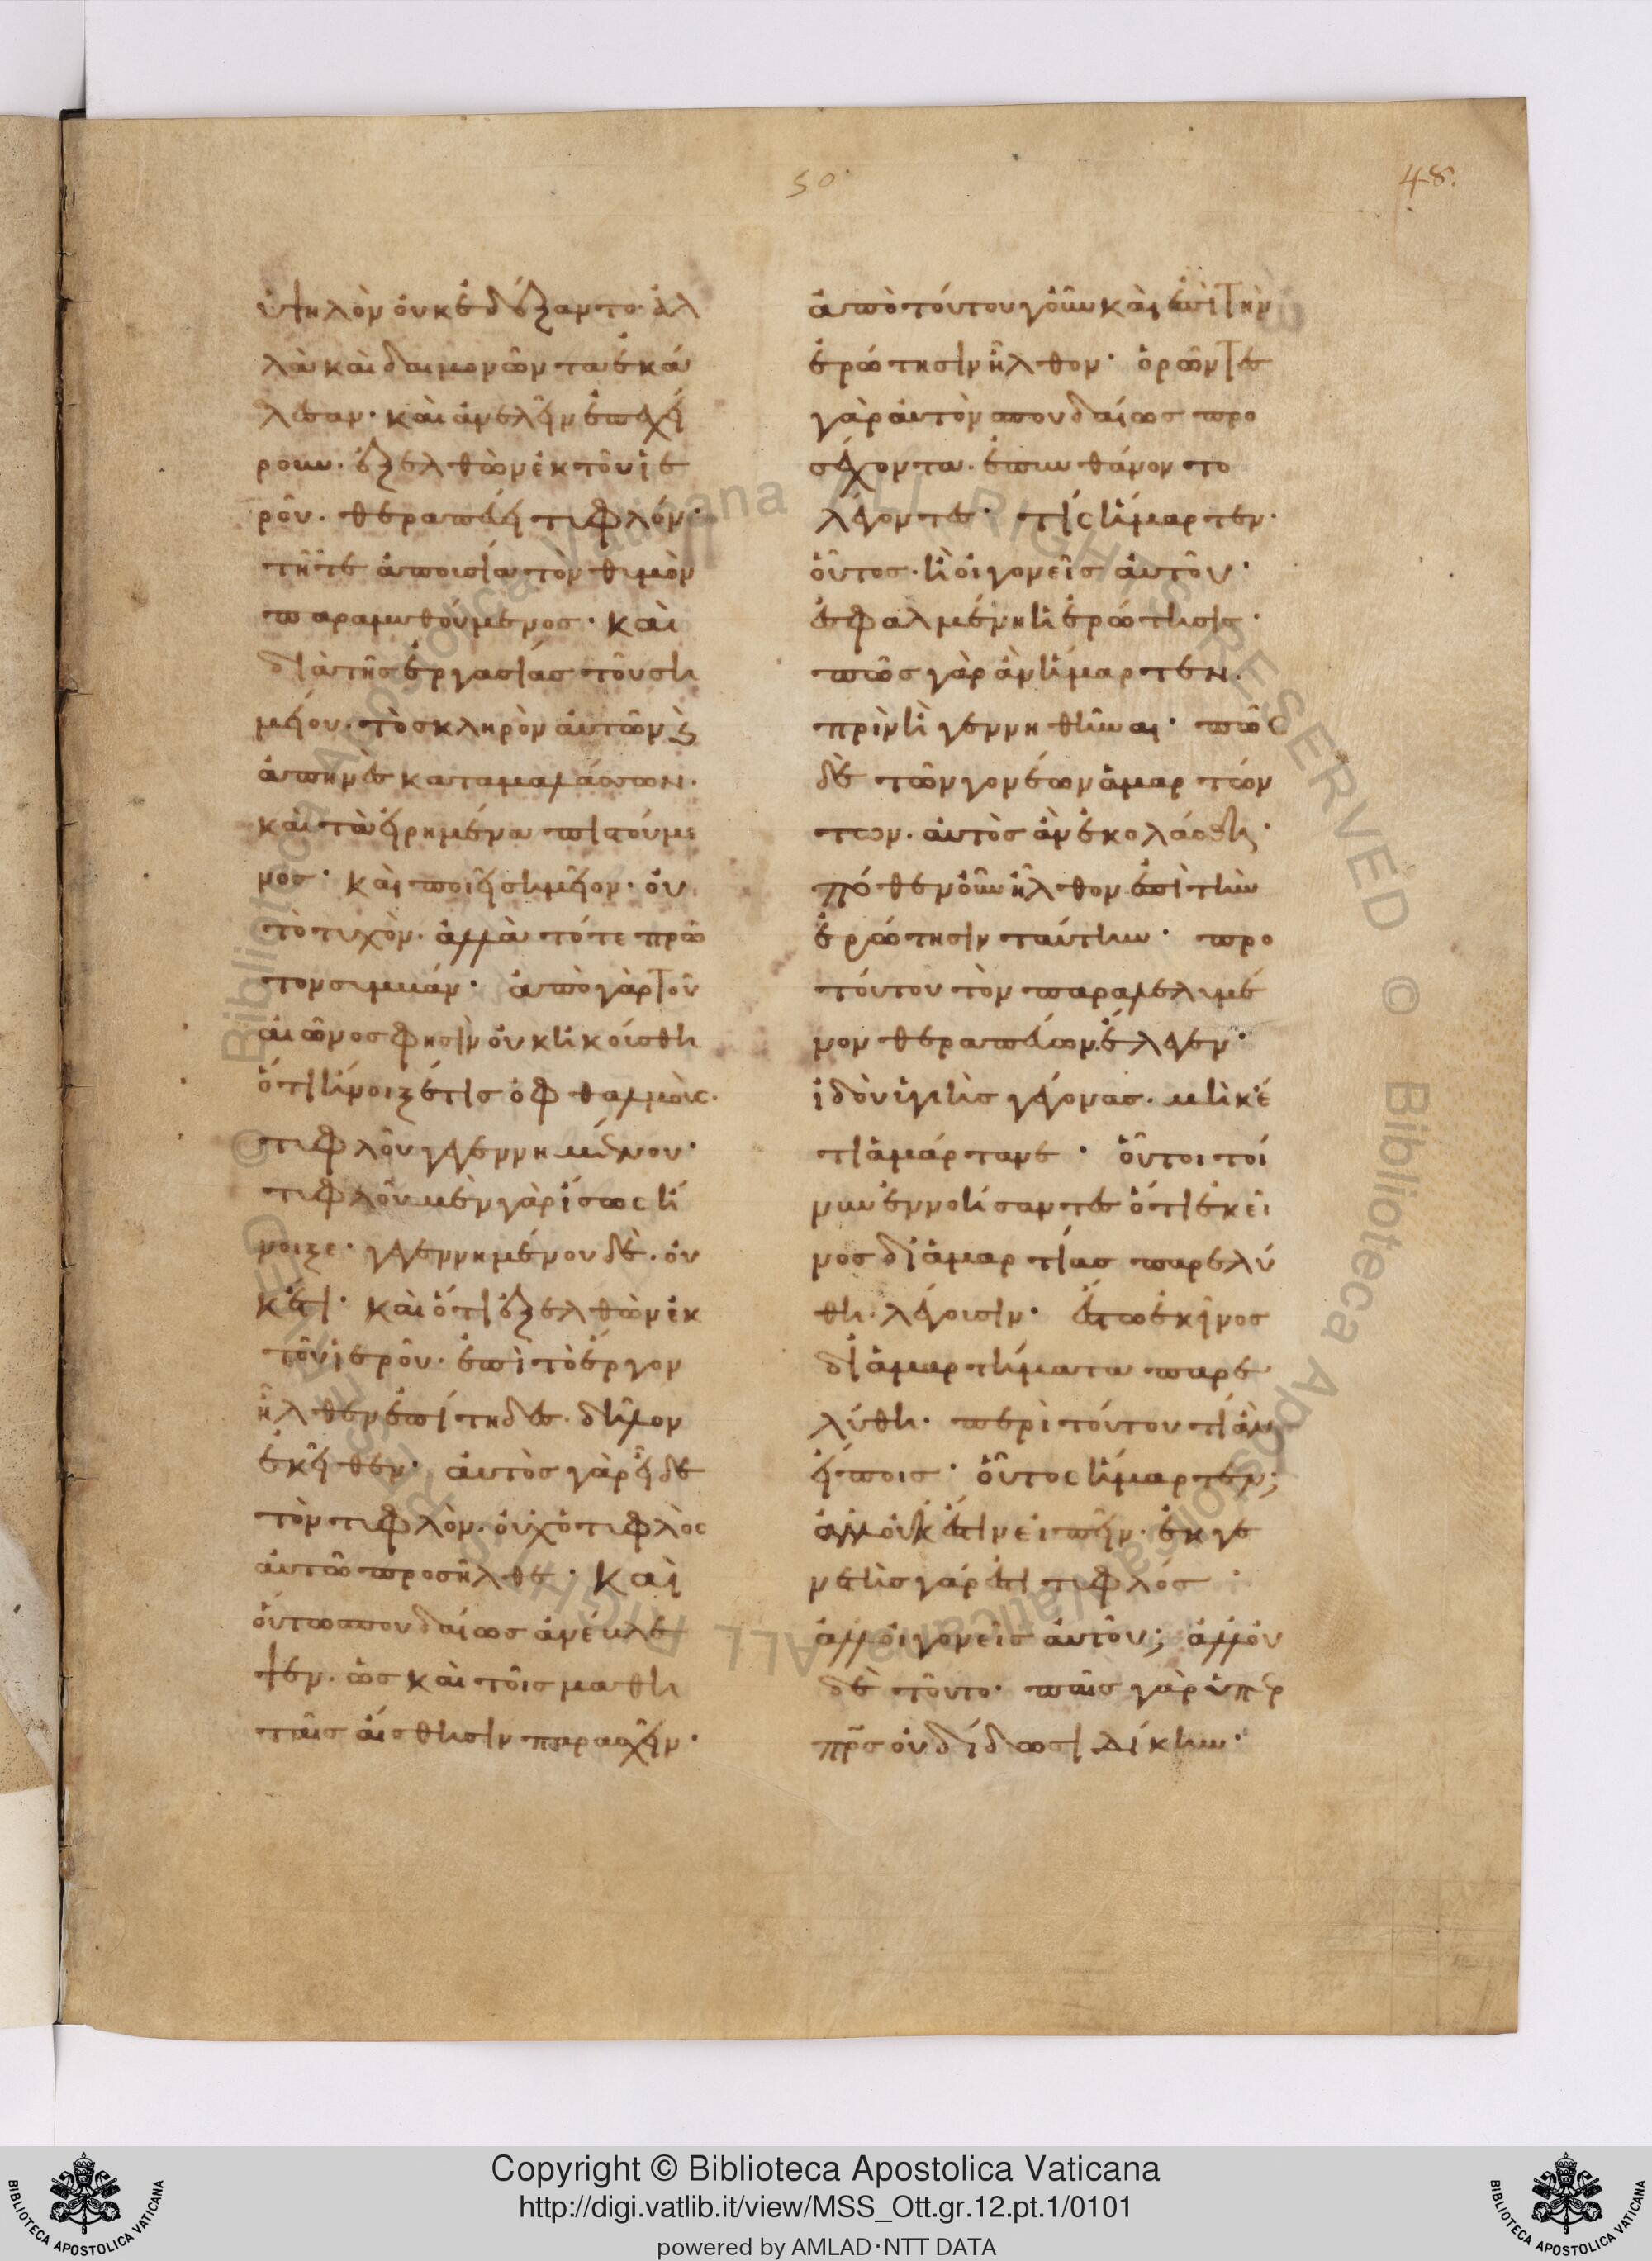 50·
48.
ὑψηλὸν οὐκ ἐδέξαντο· ἀλ
λὰ καὶ δαιμονῶντα ἐκά
λεσαν· καὶ ἀνελεῖν ἐπεχεί
ρουν· ἐξελθὼν ἐκ τοῦ ἱε
ροῦ. θεραπεύει τυφλόν·
τῆ τε ἀπουσία τὸν θυμὸν
παραμυθούμενος· καὶ
διὰ τῆς ἐργασίας τοῦ ση
μείου· τὸ σκληρὸν αὐτῶν καὶ
ἀπηνὲς καταμαλάσσων.
καὶ τὰ εἰρημένα πιστούμε
νος· καὶ ποιεῖ σημεῖον· οὐ
τὸ τυχὸν. ἀλλὰ τότε πρῶ
τον συμβάν· ἀπὸ γὰρ τοῦ
αἰῶνος φησὶν οὐκ ἠκούσθη
ὅτι ἤνοιξέ τις ὀφθαλμοὺς·
τυφλοῦ γεγεννημένου·
τυφλοῦ μὲν γὰρ ἴσως ἤ
νοιξε· γεγεννημένου δὲ. οὐ
κέτι· καὶ ὅτι ἐξελθὼν ἐκ
τοῦ ἱεροῦ· ἐπὶ τὸ ἔργον
ἦλθεν ἐπίτηδες· δῆλον
ἐκεῖθεν· αὐτὸς γὰρ εἶδε
τὸν τυφλὸν. οὐχ ὁ τυφλὸς
αὐτῶ προσῆλθε· καὶ
οὕτω σπουδαίως ἀνέβλε
ψεν. ὡς καὶ τοῖς μαθη
ταῖς αἴσθησιν παρασχεῖν·
ἀπὸ τούτου γοῦν καὶ ἐπὶ τὴν
ἐρώτησιν ἦλθον· ὁρῶντες
γὰρ αὐτὸν σπουδαίως προ
σέχοντα. ἐπυνθάνοντο
λέγοντες· τίς ἥμαρτεν·
οὗτος. ἢ οἱ γονεῖς αὐτοῦ·
ἐσφαλμένη ἡ ἐρώτησις·
πῶς γὰρ ἂν ἥμαρτεν.
πρὶν ἢ γεννηθῆναι· πῶς
δὲ τῶν γονέων ἁμαρτόν
των. αὐτὸς ἂν ἐκολάσθη·
πόθεν οὖν ἦλθον ἐπὶ τὴν
ἐρώτησιν ταύτην· προ
τούτου τὸν παραλελυμέ
νον θεραπεύων ἔλεγεν·
ἰδοὺ ὑγιὴς γέγονας. μηκέ
τι ἁμάρτανε· οὗτοι τοί
νυν ἐννοήσαντες ὅτι ἐκεῖ
νος δι ἁμαρτίας παρελύ
θη· λέγουσιν· ἔστω ἐκεῖνος
δι ἁμαρτήματα παρε
λύθη· περὶ τούτου τί ἂν
εἴποις· οὗτος ἥμαρτεν;
ἀλλ οὐκ ἔστιν εἰπεῖν. ἐκ γε
νετῆς γάρ ἐστι τυφλός·
ἀλλ οἱ γονεῖς αὐτοῦ; ἀλλ οὐ
δὲ τοῦτο· παῖς γὰρ ὑπὲρ
πρς οὐ δίδωσι δίκην·
Copyright © Biblioteca Apostolica Vaticana
http://digi.vatlib.it/view/MSS_Ott.gr.12.pt.1/0101
powered by AMLAD·NTT DATA